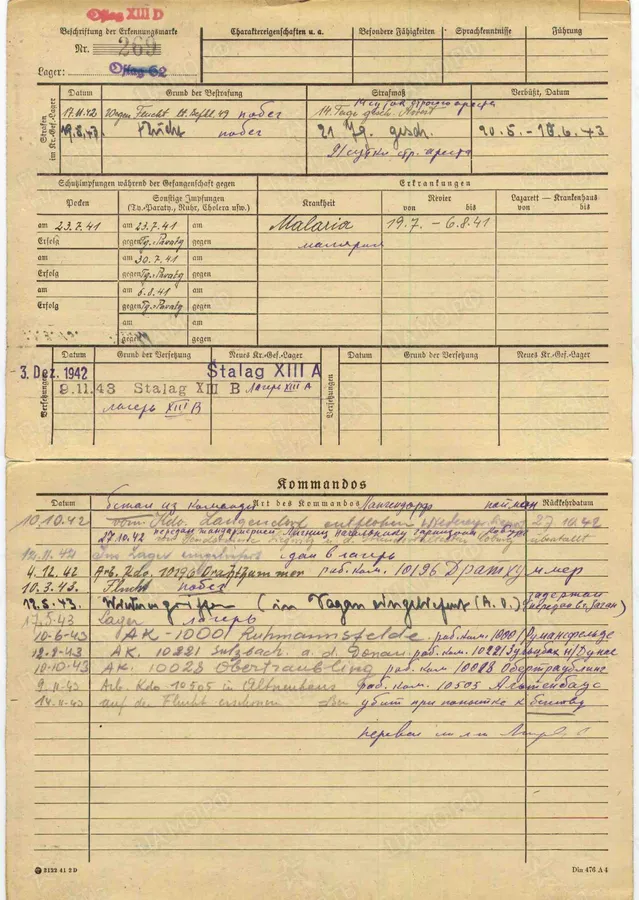 Oflag XIII D
Beschriftung der Erkennungsmarke
Nr. 269
Lager: Oflag 62
Charaktereigenschaften u. a.
Besondere Fähigkeiten
Sprachkenntnisse
Führung
Strafen im Kr.-Gef.-Lager
Datum
Grund der Bestrafung
Strafmaß
Verbüßt, Datum
17.11.42 Wegen Flucht побег
14 Tage gesch. Arrest
14 суток строгого ареста
19.8.43. Flucht побег
21 Tg. gesch.
20.5. - 10.6.43
21 сутки стр. ареста
Schutzimpfungen während der Gefangenschaft gegen
Erkrankungen
Pocken
Sonstige Impfungen
(Ty.-Paraty., Ruhr, Cholera usw.)
Krankheit
Revier
von bis
Lazarett — Krankenhaus
von bis
am 23.7.41 am 23.7.41 am
Malaria 19.7. - 6.8.41
Erfolg gegen Ty.-Paraty gegen
малярия
am am 30.7.41 am
Erfolg gegen Ty.-Paraty gegen
am am 6.8.41 am
Erfolg gegen Ty.-Paraty gegen
am am
gegen gegen
Versetzungen
Datum
Grund der Versetzung
Neues Kr.-Gef.-Lager
Versetzungen
Datum
Grund der Versetzung
Neues Kr.-Gef.-Lager
3. Dez. 1942 Stalag XIII A
9.11.43 Stalag XIII B лагерь XIII A
лагерь XIII B
Kommandos
Datum
Art des Kommandos
Rückkehrdatum
бежал из команды Лангендорф пойман
10.10.42 vom Kdo. Langendorf entflohen 27.10.42
27.10.42
Im Lager сдан в лагерь
4.12.42 Arb. Kdo. 10196 раб. ком. 10196
10.3.43. Flucht побег
19.5.43. Wiederergriffen (in Sagan eingeliefert (A.O.) задержан
17.5.43 Lager лагерь
10-6-43 AK-1000 Ruhmannsfelde раб. ком. 1000 Румансфельде
12-9-43 AK. 10221 Sulzbach a. d. Donau раб. ком. 10221 Зульцбах н/Дунае
10-10-43 AK. 10023 Obertraubling раб. ком 10023 Обертраублинг
9.11-43 Arb. Kdo 10505 in раб. ком. 10505
14.11-43 auf der Flucht erschossen убит при попытке к бегству
перевел
3132 41 2 D
Din 476 A 4